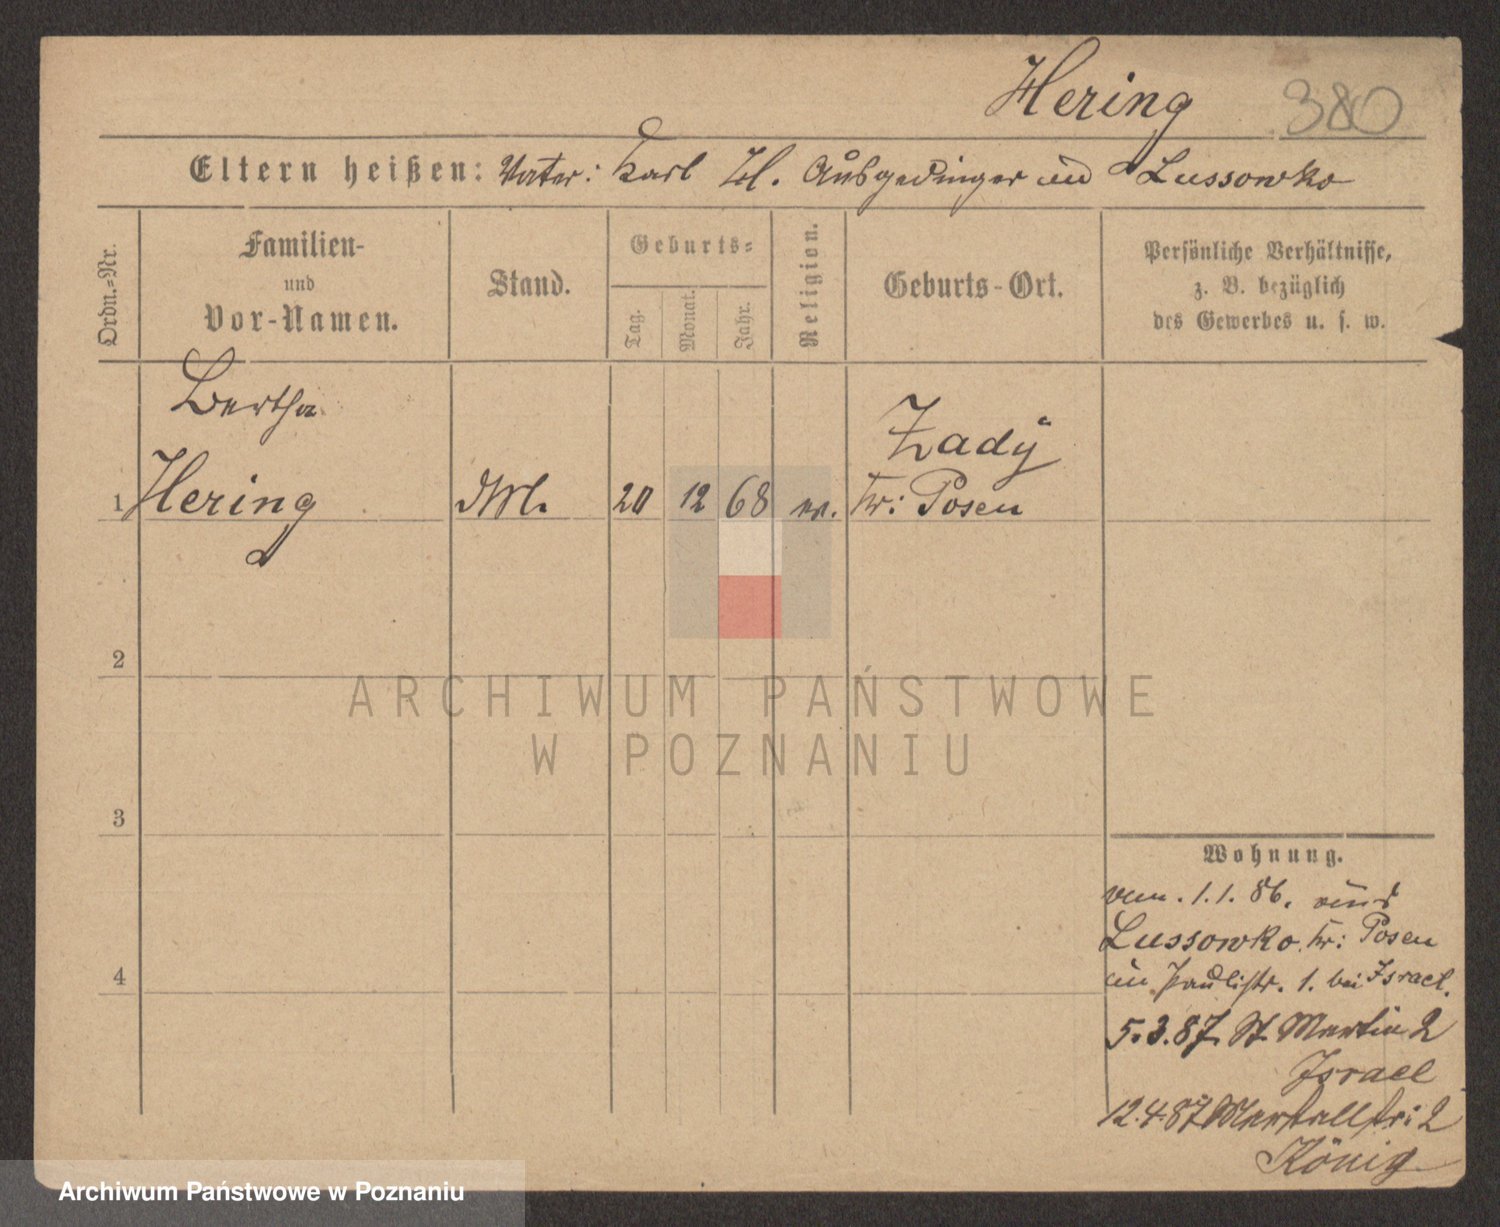 Hering 380
Eltern heißen: Vater: Karl H. Ausgedinger in Lussowko
Ordn.-Nr.
Familien-
und
Vor-Namen.
Stand.
Geburts-
Tag.
Monat.
Jahr.
Religion.
Geburts-Ort.
Persönliche Verhältnisse,
z. B. bezüglich
des Gewerbes u. s. w.
Bertha
1 Hering 20 12 68 ev.
Kr: Posen
2
3
4
Wohnung.
vom. 1.1.86. aus
Lussowko Kr: Posen
in Paulistr. 1. bei Israel.
5.3.87. St. Martin 2
Israel
12.4.87 Marstallstr: 2
König
ARCHIWUM PAŃSTWOWE
W POZNANIU
Archiwum Państwowe w Poznaniu